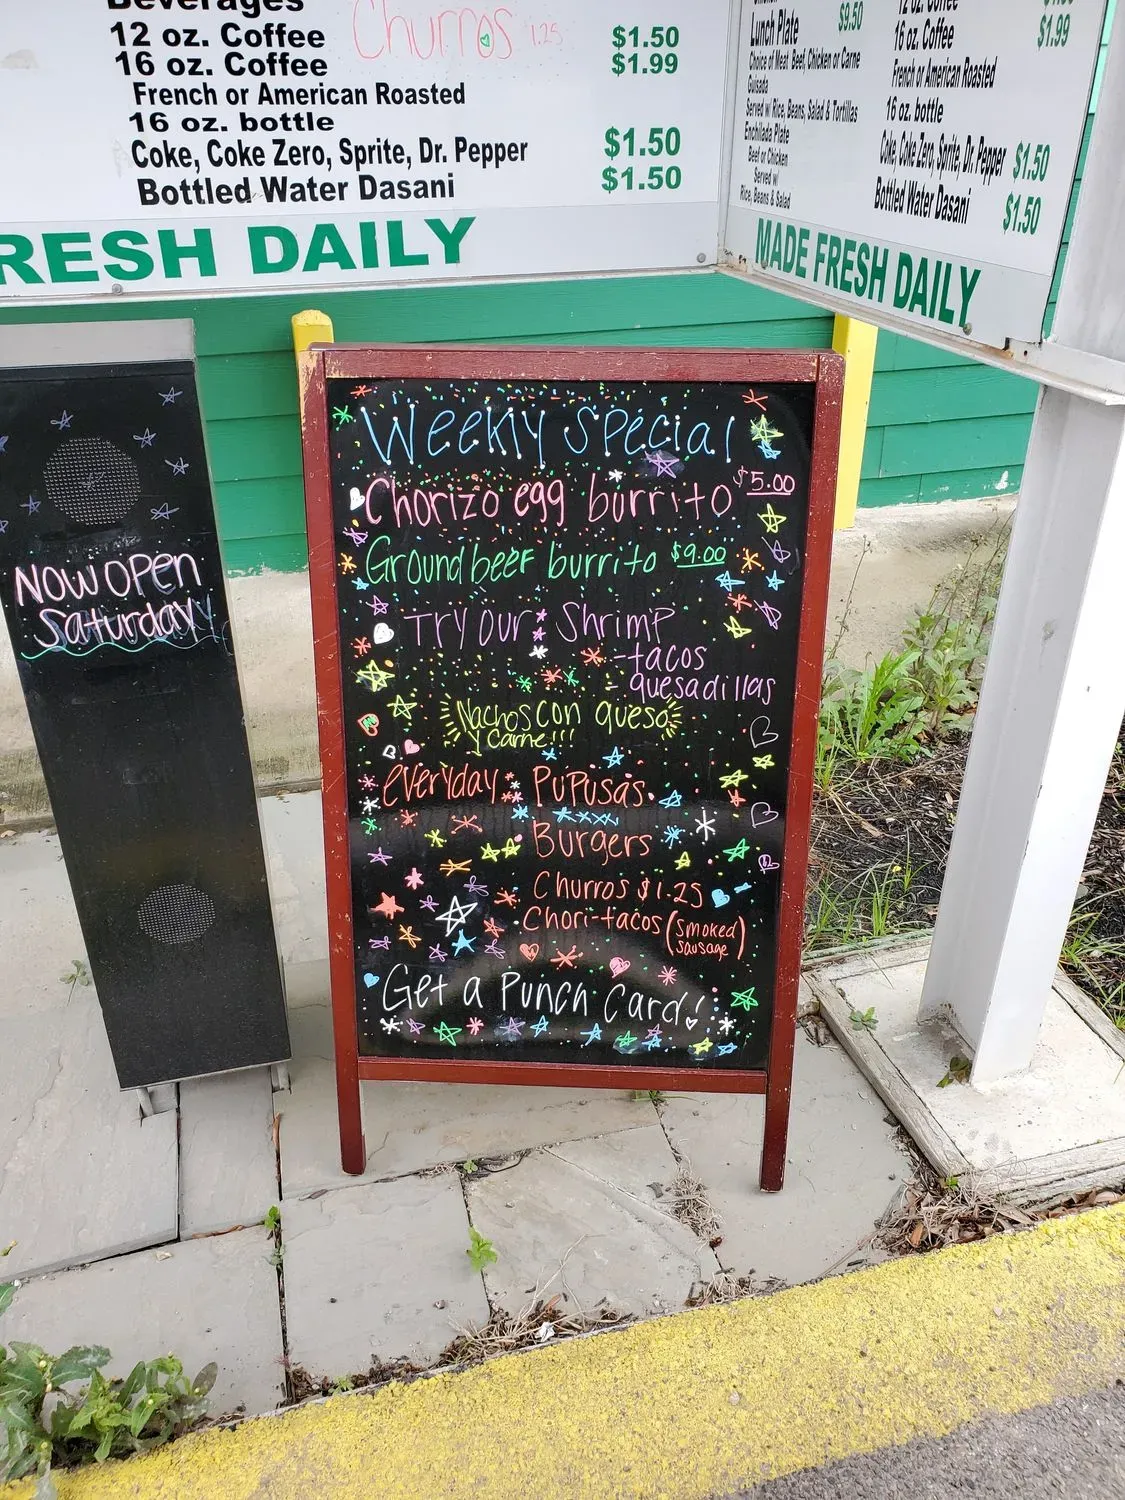 Beverages
12 oz. Coffee $1.50
Churros 1.25
16 oz. Coffee $1.99
French or American Roasted
16 oz. bottle
Coke, Coke Zero, Sprite, Dr. Pepper $1.50
Bottled Water Dasani $1.50
RESH DAILY
$9.50
Lunch Plate
Choice of Meat Beef, Chicken or Carne
Guisada
Served w/ Rice, Beans, Salad & Tortillas
Enchilada Plate
Beef or Chicken
Served w/
Rice, Beans & Salad
12 oz. Coffee
16 oz. Coffee $1.99
French or American Roasted
16 oz. bottle
Coke, Coke Zero, Sprite, Dr. Pepper $1.50
Bottled Water Dasani $1.50
MADE FRESH DAILY
NOW OPEN
Saturday
Weekly Special
Chorizo egg burrito $5.00
Ground beef burrito $9.00
Try our Shrimp
-tacos
- quesadillas
Nachos con queso
y carne!!!
everyday Pupusas
Burgers
Churros $1.25
Chori-tacos (smoked
sausage)
Get a Punch Card!